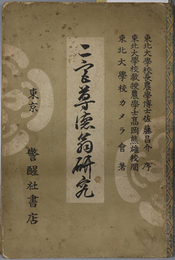 東北大學校長農學博士佐藤昌介 序
東北大學校教授農學士高岡熊雄校閲
東北大學校カメラ會著
二宮尊德翁研究
東京 警醒社書店